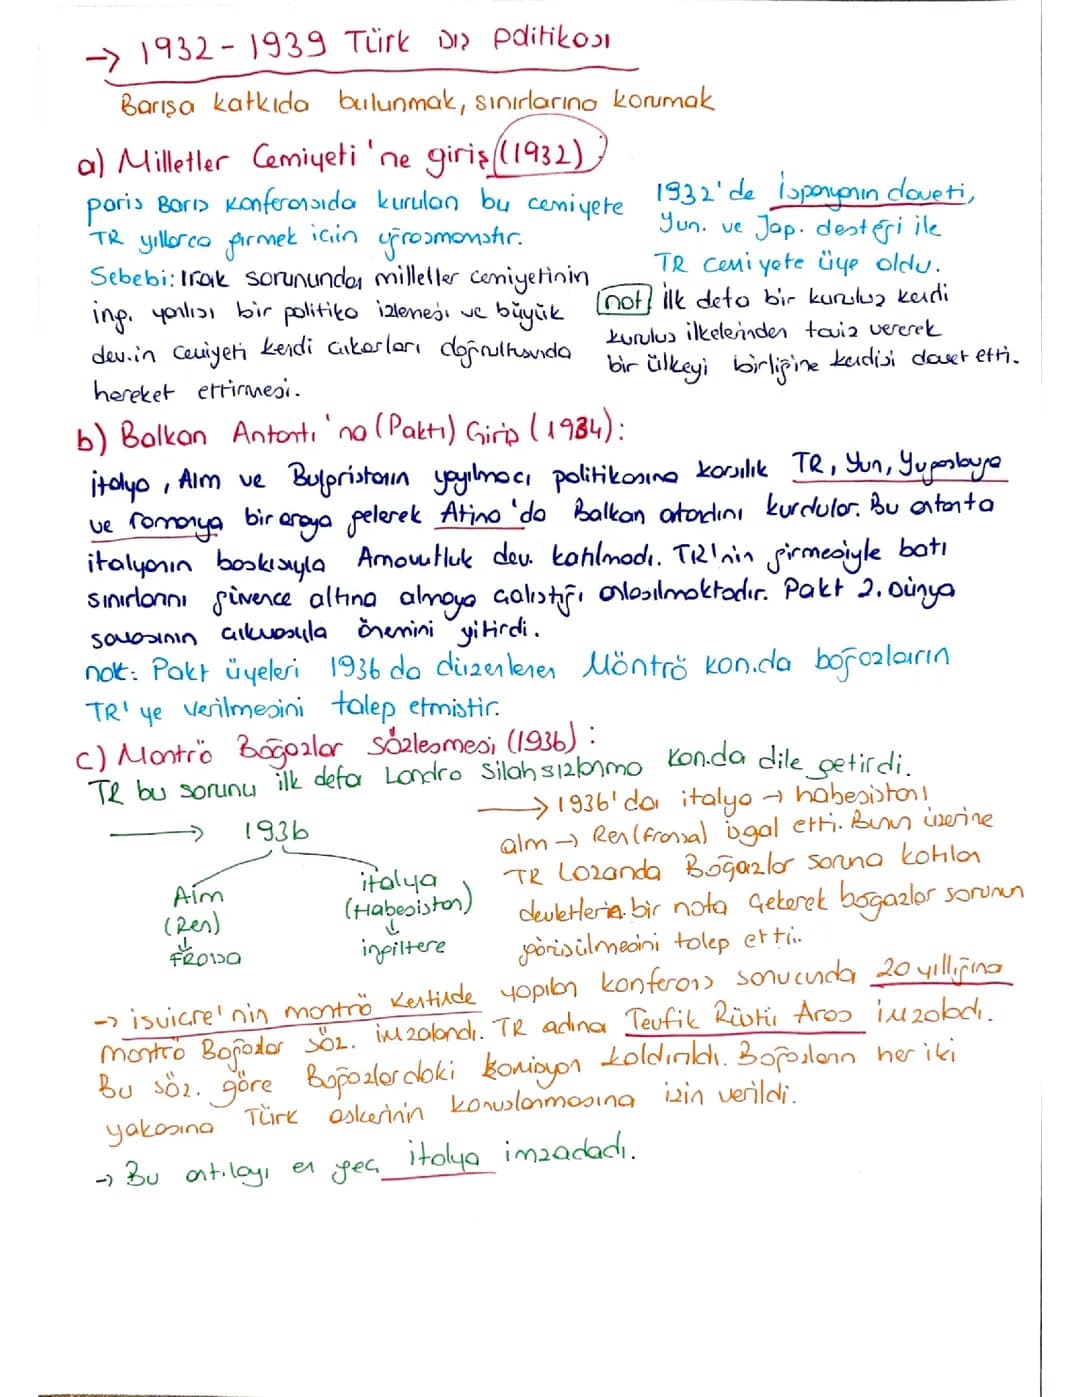 → 1932-1939 Türk Dış politikası
Barışa katkıda bulunmak, sınırlarına korumak
a) Milletler Cemiyeti'ne giriş (1932)
paris Barış Konferansıda kurulan bu cemiyete
TR yıllarca girmek için uğraşmanıştır.
Sebebi: Irak sorununda, milletler cemiyetinin
ing. yanlısı bir politika izlemesi ve büyük
dev.in cemiyeti kendi çıkarları doğrultusunda
hareket ettirmesi.
1932'de İspanyanın daveti,
Yun. ve Jap. desteği ile
TR cemiyete üye oldu.
not/ ilk defa bir kuruluş kendi
kuruluş ilkelerinden taviz vererek
bir ülkeyi birliğine kendisi davet etti.
b) Balkan Antantı'na (Paktı) Giriş (1934):
italya, Alm ve Bulgristanın yayılmacı politikasına karşılık TR, Yun, Yugoslavya
ve romanya bir araya gelerek Atina'da Balkan antandını kurdular. Bu antanta
italyanın baskısıyla Arnavutluk dev. katılmadı. TR'nin girmesiyle batı
sınırlarını güvence altına almaya çalıştığı anlaşılmaktadır. Pakt 2. Dünya
savaşının çıkmasıyla önemini yitirdi.
not: Pakt üyeleri 1936 da düzenlenen Möntrö kon.da boğazların
TR'ye verilmesini talep etmiştir.
c) Montrö Boğazlar sözleşmesi (1936):
TR bu sorunu ilk defa Londra Silahsızlanma kon.da dile getirdi.
→ 1936
Alm
(Ren)
↓
Fransa
italya
(Habeşistan)
↓
ingiltere
→ 1936'da italya → habeşistanı
alm → Ren (fransa) işgal etti. Bunun üzerine
TR Lozanda Boğazlar soruna katılan
devletlerin bir nota çekerek boğazlar sorunun
görüşülmesini talep etti.
→ isviçre'nin montrö kentinde yapılan konferans sonucunda 20 yıllığına
montrö Boğazlar söz. imzalandı. TR adına Teufik Rüştü Aras imzaladı.
Bu söz. göre Boğazlardaki komisyon kaldırıldı. Boğazların her iki
yakasına Türk askerinin konuşlanmasına izin verildi.
→ Bu ant.layı en geç italya imzadadı.